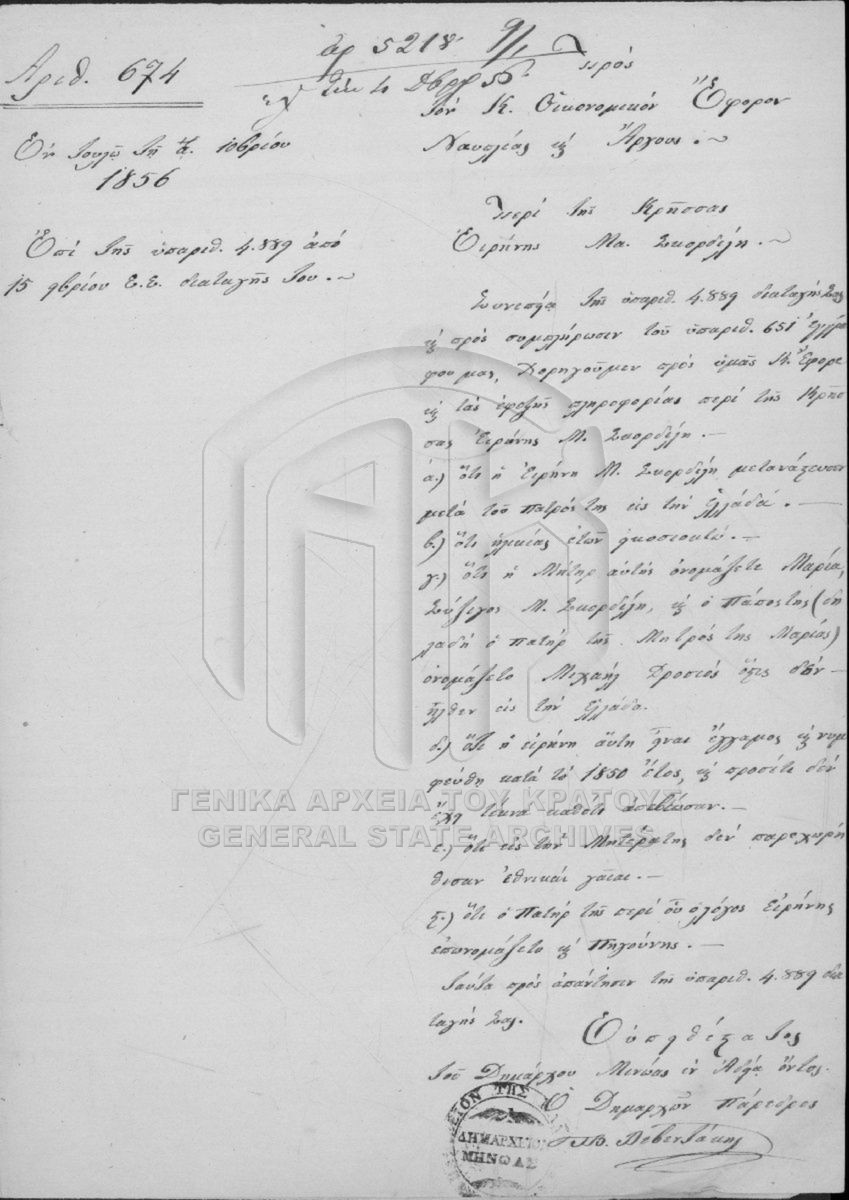 Αριθ. 674
αρ 5218
Εν Τουλῷ τῇ α. 10βρίου
1856
Επί της υπαριθ. 4.889 από
15 9βρίου Ε.Ε. διαταγής του. ~
Πρός
Τον Κ. Οἰκονομικόν Ἔφορον
Ναυπλίας κ Ἄργους. ~
Περί της Κρήσσας
Εἰρήνης Μα. Σκορδίλη. ~
Συνεπεία της ὑπαριθ. 4.889 διαταγής Σας
κ πρός συμπλήρωσιν του ὑπαριθ. 651 ἐγγρά
φου μας, χορηγοῦμεν πρός ὑμᾶς Κ. Ἔφορε
κ τάς ἑφεξῆς πληροφορίας περί τῆς Κρησ
σας Εἰρήνης Μ. Σκορδίλη. —
ά.) ὅτι ἡ Εἰρήνη Μ. Σκορδίλη μετανάστευσε
μετά του πατρός της εἰς την Ἑλλάδα. —
β.) ὅτι ἡλικίας ἐτῶν εἰκοσιοκτώ. —
γ.) ὅτι ἡ Μήτηρ αὐτῆς ὀνομάζετε Μαρία,
Σύζιγος Μ. Σκορδίλη, κ ὁ Πάπος της (δη
λαδή ὁ πατήρ της Μητρός της Μαρίας)
ὀνομάζετο Μιχαήλ Δροσος ὅςτις δέν
ἦλθεν εἰς την Ἑλλάδα.
δ.) ὅτι ἡ εἰρήνη αὔτη ἦναι ἔγγαμος κ νυμ
φεύθη κατά τό 1850 ἔτος, κ προσέτι δέν
ἔχη τέκνα καθότι ἀπεβίωσαν. —
ε.) ὅτι εἰς την Μητέρα της δέν παρεχωρή
θησαν ἐθνικαί γαῖαι. —
ς.) ὅτι ὁ Πατήρ της περί οὗ ὁ λόγος Εἰρήνης
ἐπωνομάζετο κ Πηγούνης. —
Ταῦτα πρός ἀπάντησιν τῆς ὑπαριθ. 4.889 δια
ταγής Σας.
Ευπειθέςατος
Τοῦ Δημάρχου Μινώας ἐν ὄντος.
Ὁ Δημαρχῶν Πάρεδρος
ΔΗΜΑΡΧΕΙΟΝ ΤΗΣ
ΔΗΜΑΡΧΙ
ΜΗΝΩΑΣ
ΓΕΝΙΚΑ ΑΡΧΕΙΑ ΤΟΥ ΚΡΑΤΟΥΣ
GENERAL STATE ARCHIVES